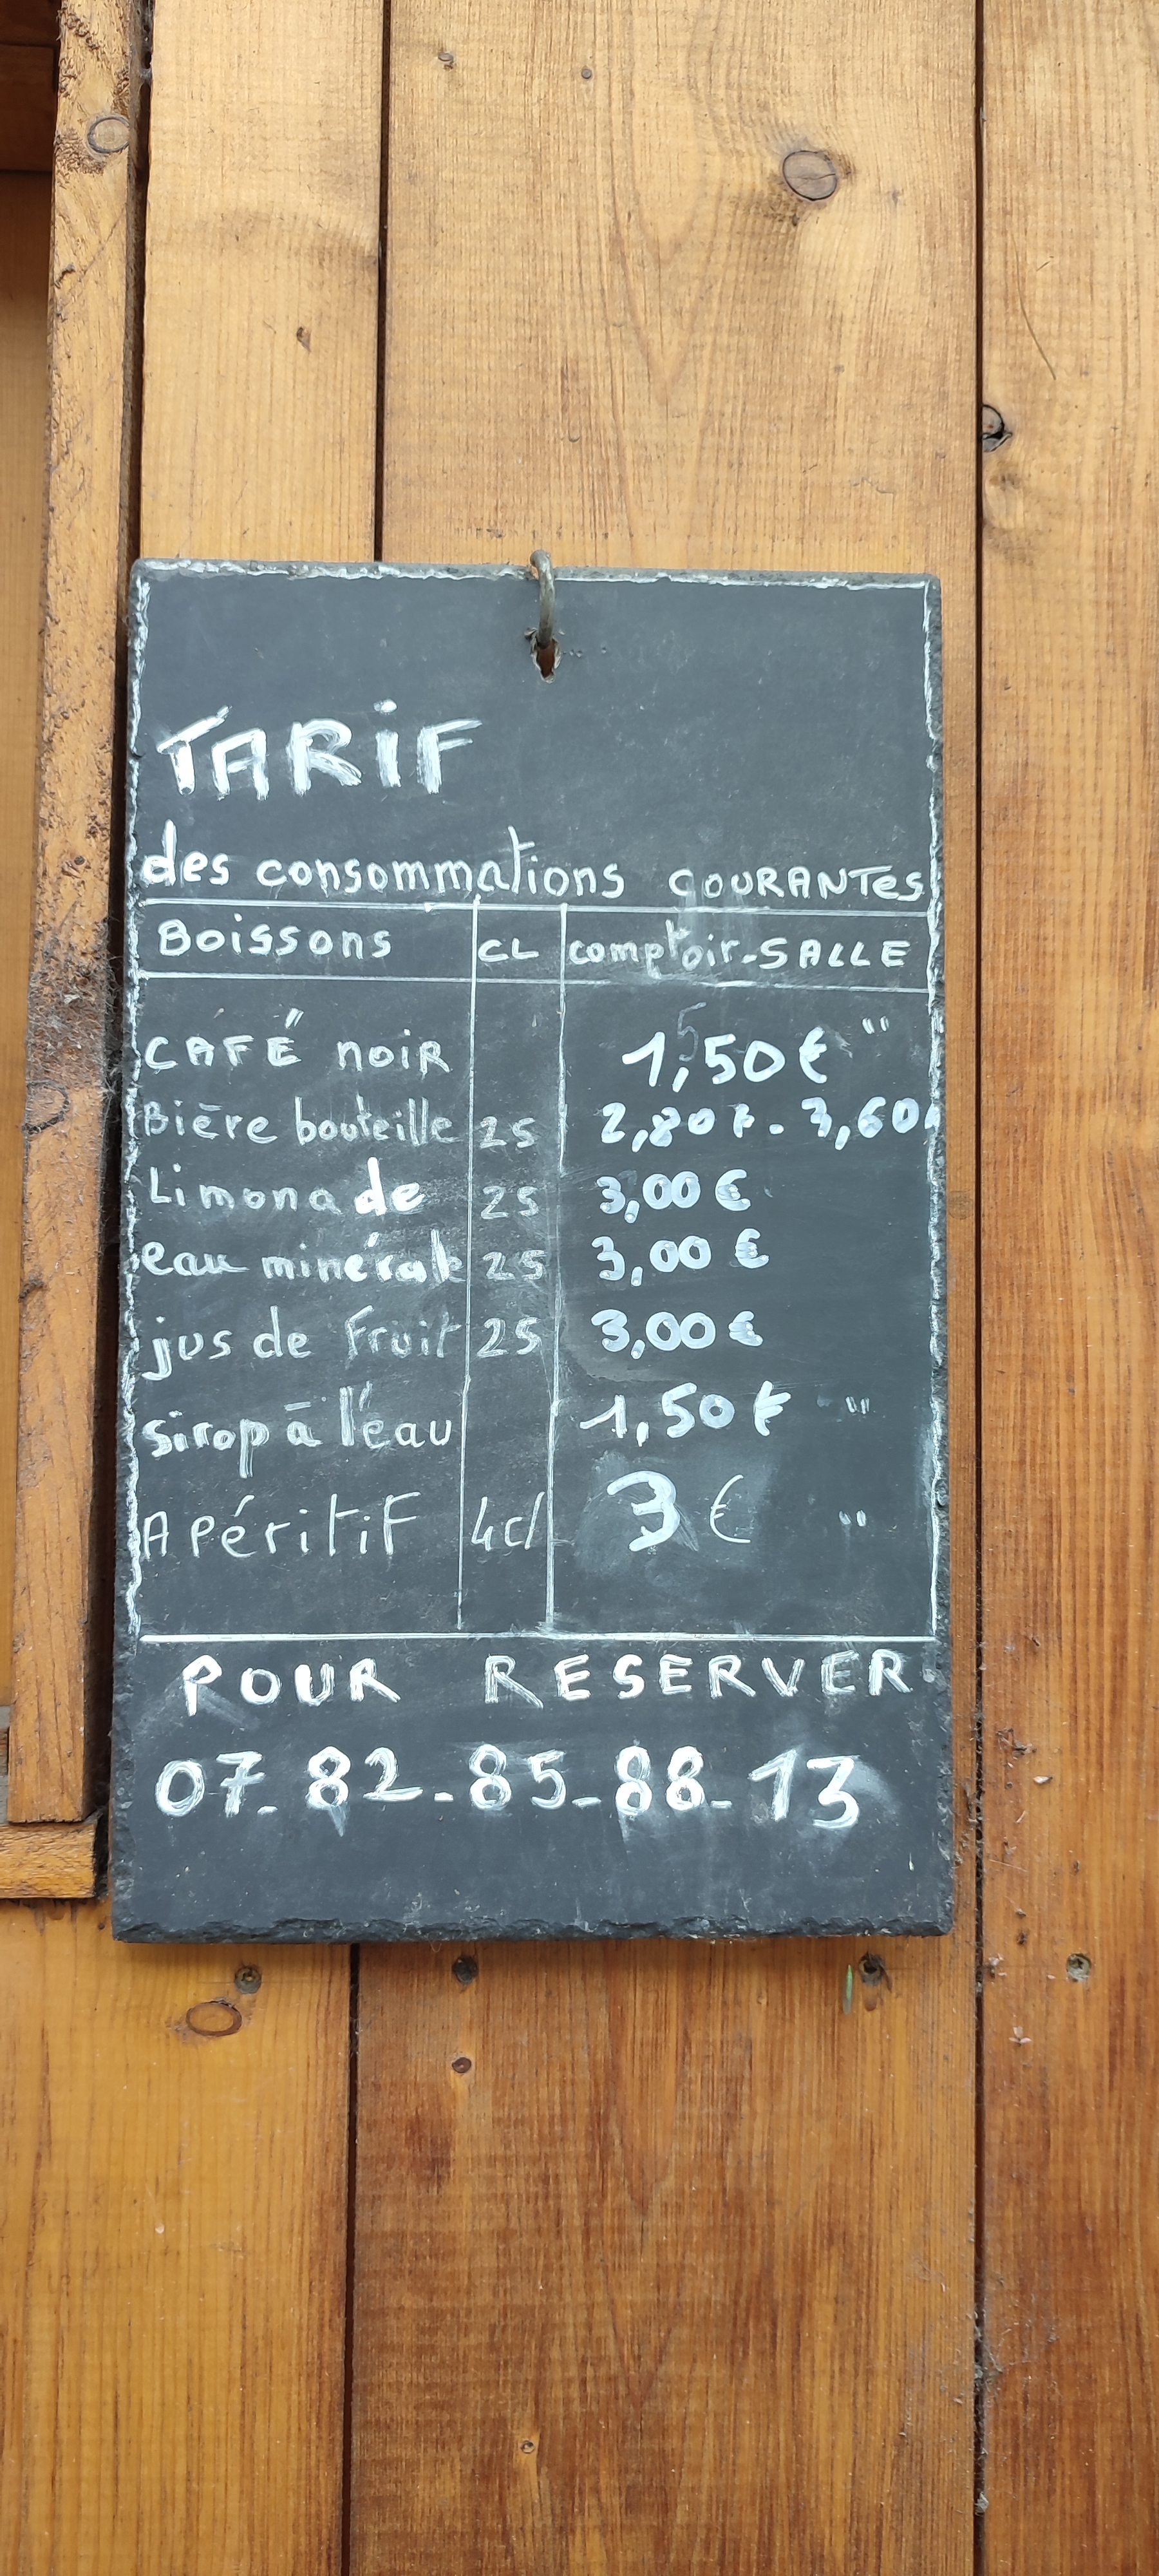 TARiF
des consommations COURANTes
Boissons CL comptoir-SALLE
CAFÉ noiR 1,50€ "
Bière bouteille 25 2,80€ - 3,60
Limonade 25 3,00€
eau minérale 25 3,00€
jus de Fruit 25 3,00€
sirop à l'eau 1,50€ "
ApéritiF 4cl 3€ "
POUR RESERVER
07-82-85-88-13